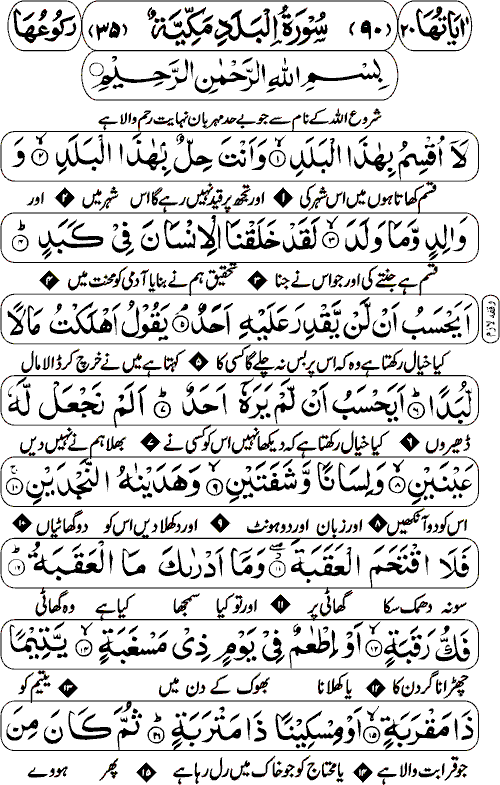 اٰیَاتُهَا ۲۰ (۹۰) سُوْرَةُ الْبَلَدِ مَكِّیَّةٌ (۳۵) رُكُوْعُهَا ۱
بِسْمِ اللّٰهِ الرَّحْمٰنِ الرَّحِیْمِ
شروع اللہ کے نام سے جو بے حد مہربان نہایت رحم والا ہے
لَاۤ اُقْسِمُ بِهٰذَا الْبَلَدِ ۙ۱ وَاَنْتَ حِلٌّۢ بِهٰذَا الْبَلَدِ ۙ۲ وَ
قسم کھاتا ہوں میں اس شہر کی ۱ اور تجھ پر قید نہیں رہے گا اس شہر میں ۲ اور
وَالِدٍ وَّمَا وَلَدَ ۙ۳ لَقَدْ خَلَقْنَا الْاِنْسَانَ فِیْ كَبَدٍ ؕ۴
قسم ہے جنتے کی اور جو اس نے جنا ۳ تحقیق ہم نے بنایا آدمی کو محنت میں ۴
اَیَحْسَبُ اَنْ لَّنْ یَّقْدِرَ عَلَیْهِ اَحَدٌ ۘ۵ یَقُوْلُ اَهْلَكْتُ مَالًا
کیا خیال رکھتا ہے وہ کہ اس پر بس نہ چلے گا کسی کا ۵ کہتا ہے میں نے خرچ کر ڈالا مال
لُّبَدًا ؕ۶ اَیَحْسَبُ اَنْ لَّمْ یَرَهٗۤ اَحَدٌ ؕ۷ اَلَمْ نَجْعَلْ لَّهٗ
ڈھیروں ۶ کیا خیال رکھتا ہے کہ دیکھا نہیں اس کو کسی نے ۷ بھلا ہم نے نہیں دیں
عَیْنَیْنِ ۙ۸ وَلِسَانًا وَّشَفَتَیْنِ ۙ۹ وَهَدَیْنٰهُ النَّجْدَیْنِ ۚ۱۰
اس کو دو آنکھیں ۸ اور زبان اور دو ہونٹ ۹ اور دکھلا دیں اس کو دو گھاٹیاں ۱۰
فَلَا اقْتَحَمَ الْعَقَبَةَ ۖ۱۱ وَمَاۤ اَدْرٰىكَ مَا الْعَقَبَةُ ؕ۱۲
سو نہ دھمک سکا گھاٹی پر ۱۱ اور تو کیا سمجھا کیا ہے وہ گھاٹی
فَكُّ رَقَبَةٍ ۙ۱۳ اَوْ اِطْعٰمٌ فِیْ یَوْمٍ ذِیْ مَسْغَبَةٍ ۙ۱۴ یَّتِیْمًا
چھڑانا گردن کا ۱۲ یا کھلانا بھوک کے دن میں ۱۳ یتیم کو
ذَا مَقْرَبَةٍ ۙ۱۵ اَوْ مِسْكِیْنًا ذَا مَتْرَبَةٍ ؕ۱۶ ثُمَّ كَانَ مِنَ
جو قرابت والا ہے ۱۴ یا محتاج کو جو خاک میں رل رہا ہے ۱۵ پھر ہووے